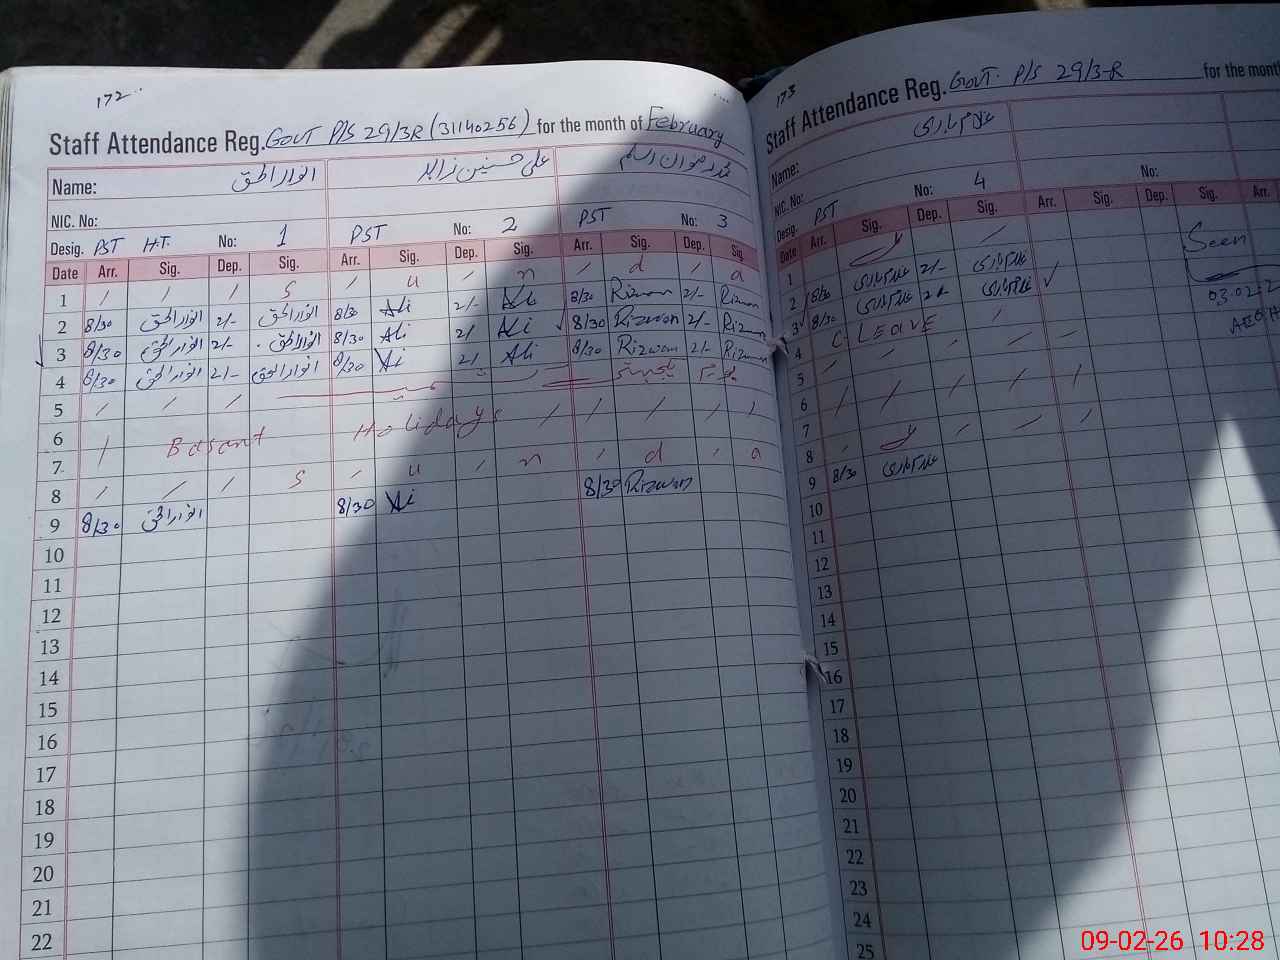 172
Staff Attendance Reg. GOVT P/S 29/3R (31140256) for the month of February
Name: انوار الحق علی حسنین زاہد
NIC. No:
Desig. PST H.T. No: 1 PST No: 2 PST No: 3
Date Arr. Sig. Dep. Sig. Arr. Sig. Dep. Sig. Arr. Sig. Dep. Sig.
1 / / / S / u / n / d / a
2 8/30 انوار الحق 2/- انوار الحق 8/30 Ali 2/- Ali 8/30 Rizwan 2/- Rizwan
3 8/30 انوار الحق 2/- انوار الحق 8/30 Ali 2/ Ali 8/30 Rizwan 2/- Rizwan
4 8/30 انوار الحق 2/- انوار الحق 8/30 Ali 2/- Ali 8/30 Rizwan 2/- Rizwan
5 / / /
6 / Basant Holidays / / / / /
7
8 / / / S / u / n / d / a
9 8/30 انوار الحق 8/30 Ali 8/30 Rizwan
10
11
12
13
14
15
16
17
18
19
20
21
22
173
Staff Attendance Reg. GOVT. P/S 29/3-R for the month
Name:
NIC. No:
Desig. PST No: 4 No:
Date Arr. Sig. Dep. Sig. Arr. Sig. Dep. Sig. Arr.
Seen
1
2 8/30 2/-
3 8/30 2/-
03-02-2
4 C. LEAVE
5
6
7
8
9 8/30
10
11
12
13
14
15
16
17
18
19
20
21
22
23
24
25
09-02-26 10:28